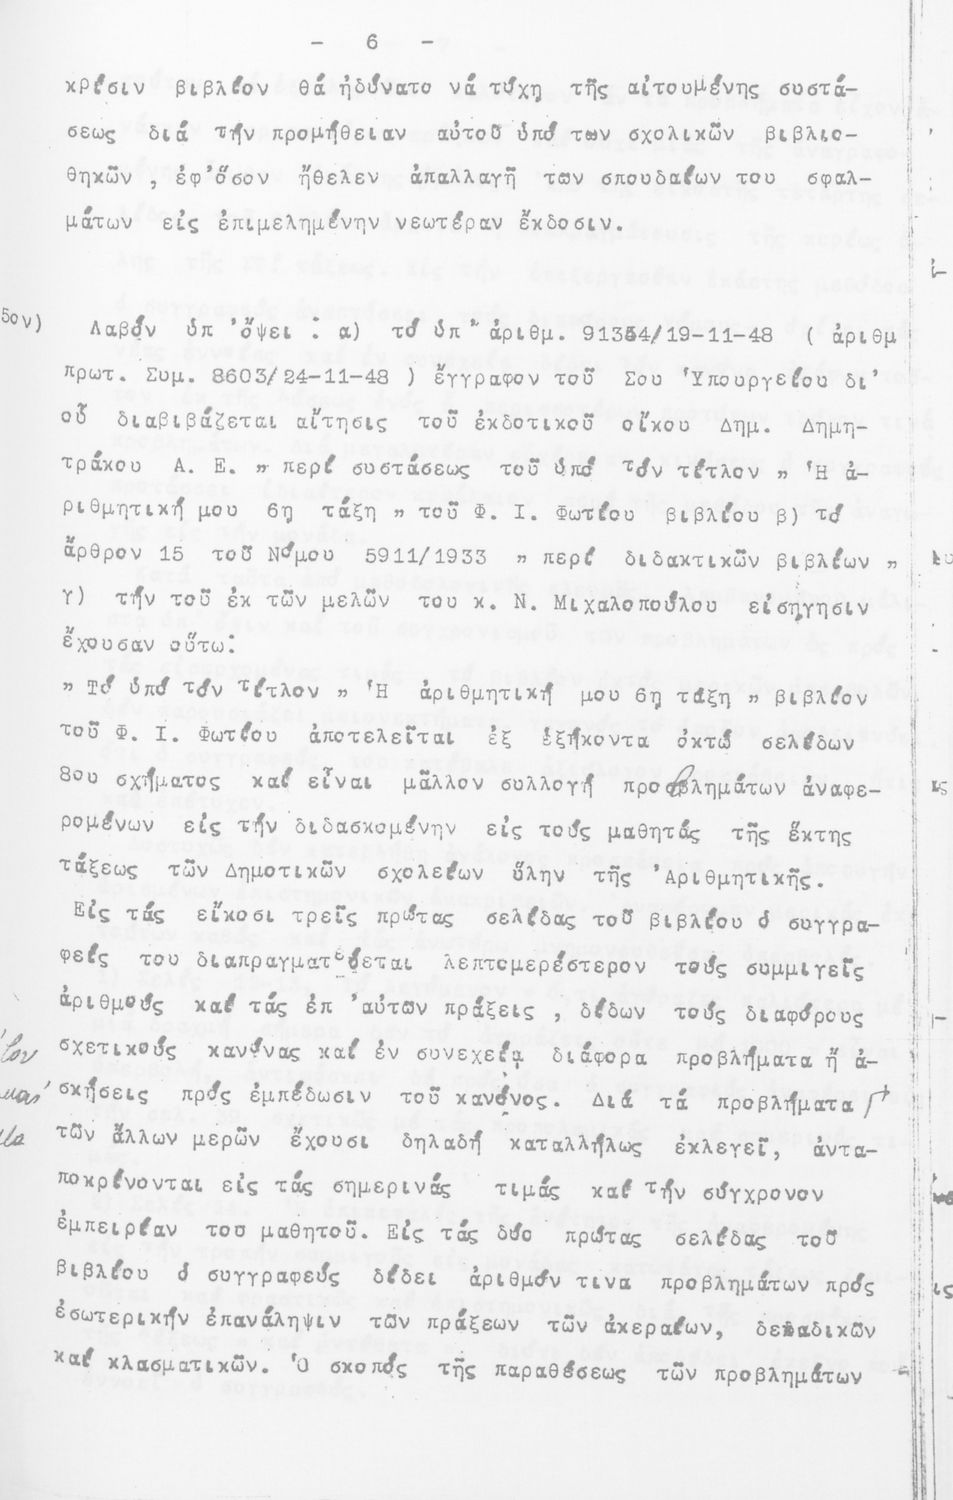 - 6 -
κρίσιν βιβλίον θά ἠδύνατο νά τύχῃ τῆς αἰτουμένης συστά-
σεως διά τήν προμήθειαν αὐτοῦ ὑπό των σχολικῶν βιβλιο-
θηκῶν , ἐφ'ὅσον ἤθελεν ἀπαλλαγῆ των σπουδαίων του σφαλ-
μάτων εἰς ἐπιμελημένην νεωτέραν ἔκδοσιν.
5ον) Λαβόν ὑπ 'ὄψει : α) τό ὑπ' ἀριθμ. 91354/19-11-48 ( ἀριθμ
πρωτ. Συμ. 8603/24-11-48 ) ἔγγραφον τοῦ Σου 'Υπουργείου δι'
οὗ διαβιβάζεται αἴτησις τοῦ ἐκδοτικοῦ οἴκου Δημ. Δημη-
τράκου Α. Ε. " περί συστάσεως τοῦ ὑπό τόν τίτλον " 'Η ἀ-
ριθμητική μου 6η τάξη " τοῦ Φ. Ι. Φωτίου βιβλίου β) τό
ἄρθρον 15 τοῦ Νόμου 5911/1933 " περί διδακτικῶν βιβλίων "
γ) τήν τοῦ ἐκ τῶν μελῶν του κ. Ν. Μιχαλοπούλου εἰσήγησιν
ἔχουσαν οὕτω:
" Τό ὑπό τόν τίτλον " 'Η ἀριθμητική μου 6η τάξη " βιβλίον
τοῦ Φ. Ι. Φωτίου ἀποτελεῖται ἐξ ἑξήκοντα ὀκτώ σελίδων
8ου σχήματος καί εἶναι μᾶλλον συλλογή προβλημάτων ἀναφε-
ρομένων εἰς τήν διδασκομένην εἰς τούς μαθητάς τῆς ἕκτης
τάξεως τῶν Δημοτικῶν σχολείων ὕλην τῆς 'Αριθμητικῆς.
Εἰς τάς εἴκοσι τρεῖς πρώτας σελίδας τοῦ βιβλίου ὁ συγγρα-
φείς του διαπραγματεύεται λεπτομερέστερον τούς συμμιγεῖς
ἀριθμούς καί τάς ἐπ 'αὐτων πράξεις , δίδων τούς διαφόρους
σχετικούς κανόνας καί ἐν συνεχείᾳ διάφορα προβλήματα ἤ ἀ-
σκήσεις πρός ἐμπέδωσιν τοῦ κανόνος. Διά τά προβλήματα
τῶν ἄλλων μερῶν ἔχουσι δηλαδή καταλλήλως ἐκλεγεῖ, ἀντα-
ποκρίνονται εἰς τάς σημερινάς τιμάς καί τήν σύγχρονον
ἐμπειρίαν του μαθητοῦ. Εἰς τάς δύο πρώτας σελίδας τοῦ
βιβλίου ὁ συγγραφεύς δίδει ἀριθμόν τινα προβλημάτων πρός
ἐσωτερικήν ἐπανάληψιν τῶν πράξεων τῶν ἀκεραίων, δεκαδικῶν
καί κλασματικῶν. 'Ο σκοπός τῆς παραθέσεως τῶν προβλημάτων